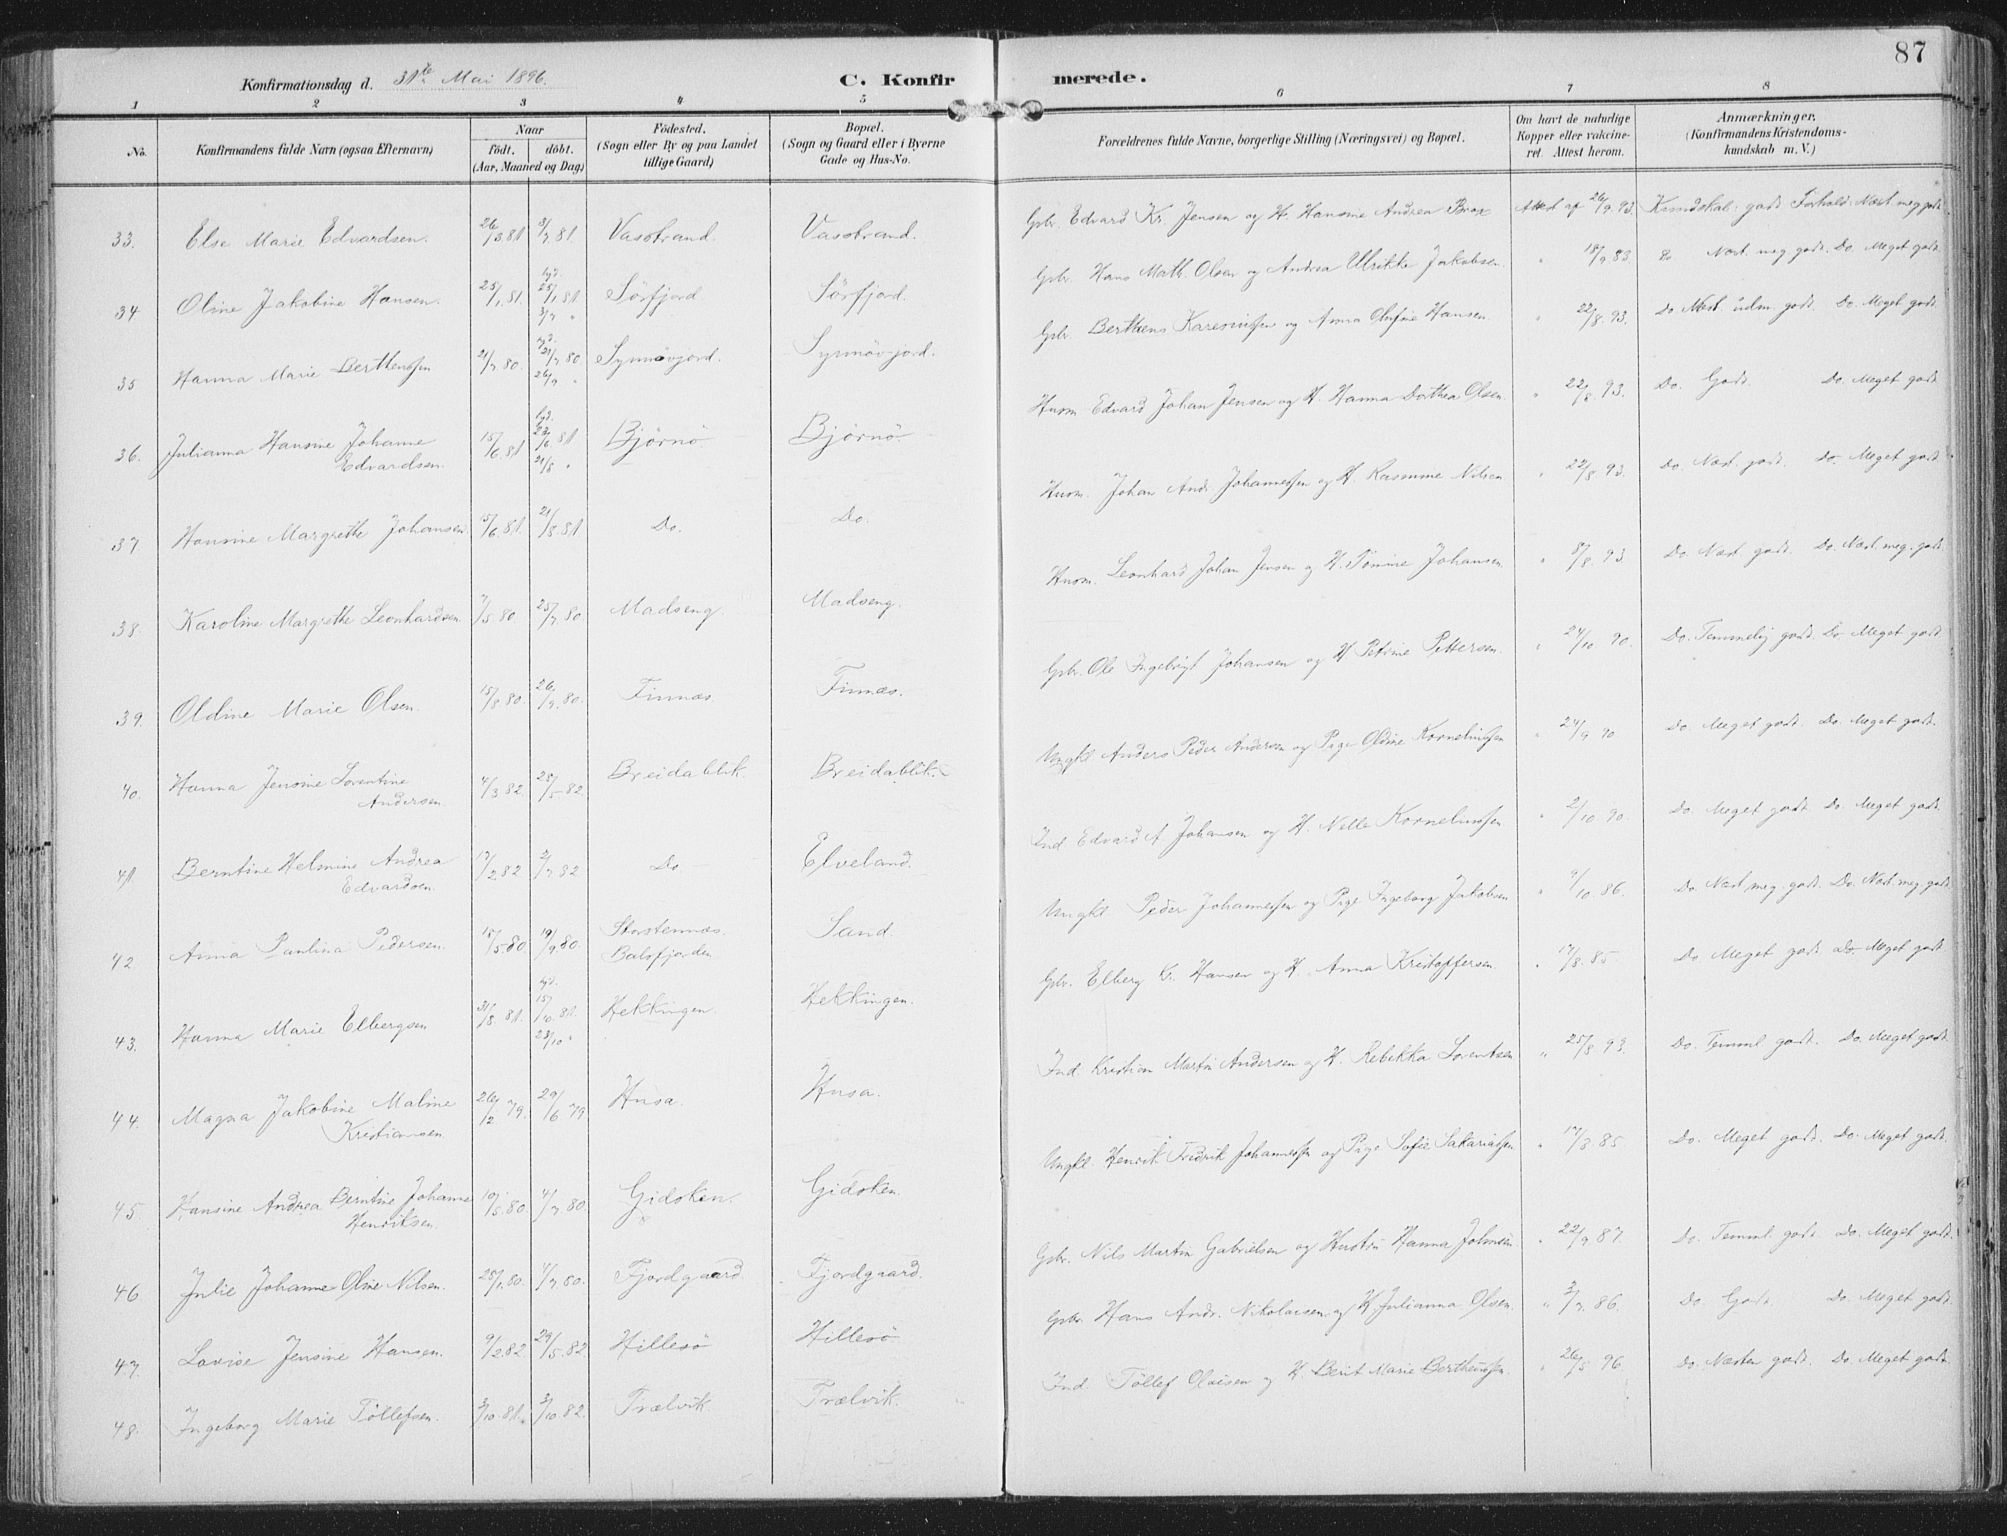 87
Konfirmationsdag d. 31te Mai 1896.
C. Konfirmerede.
1 2 3 4 5 6 7 8
No.
Konfirmandens fulde Navn (ogsaa Efternavn)
Naar
født. døbt.
(Aar, Maaned og Dag)
Fødested.
(Sogn eller By og paa Landet
tillige Gaard)
Bopæl.
(Sogn og Gaard eller i Byerne
Gade og Hus-No.
Forældrenes fulde Navne, borgerlige Stilling (Næringsvei) og Bopæl.
Om havt de naturlige
Kopper eller vakcine-
ret. Attest herom.
Anmærkninger.
(Konfirmandens Kristendoms-
kundskab m. V.)
33. Else Marie Edvardsen. 26/3.81. 3/7 81. Vasstrand. Vasstrand. Gbr. Edvard Kr. Jensen og H. Hansine Andrea Brox Attest af 26/9.93. Kundskab: godt Forhold: Næst meg godt
34 Oline Jakobine Hansen. 25/1.81. hjd. 25/1.81 3/7 " Sørfjord Sørfjord. Gbr. Hans Math. Olsen og Andrea Ulrikke Jakobsen. " 18/9 83 Do. Næst. meg godt. Do. Meget godt.
35 Hanna Marie Berthenssen 21/7.80. hjd. 21/7 80 26/9 " Synnøvjord. Synnøvjord. Gbr. Berthens Kareniussen og Anna Olufine Hansen. " 22/8.93. Do Næst. üdm. godt. Do. Meget godt.
36. Julianna Hansine Johanne
Edvardsen. 15/6.81 hjd. 22/6 81 21/8 " Bjørnø Bjørnø. Husm. Edvard Johan Jensen og H. Hanna Dorthea Olsen. " 22/8 93. Do. Godt. Do. Meget godt
37. Hansine Margrethe Johansen. 15/6.81. 21/8.81 Do. Do. Husm. Johan Andr. Johannessen og H. Rasmine Nilsen " 22/8 93. Do. Næst. godt. Do Meget godt
38. Karoline Margrethe Leonhardsen. 7/5 80 25/7 80 Madseng. Madseng. Husm. Leonhard Johan Jensen og H. Tomine Johansen. " 8/8 93 Do Næst godt. Do. Næst. meg. godt.
39. Oldine Marie Olsen. 15/8.80. 26/9.80. Finnæs. Finnæs. Gbr. Ole Ingebrigt Johansen og H Petrine Pettersen. " 24/10 90. Do. Temmelig godt. Do Meget godt.
40. Hanna Jensine Lorentine
Andersen. 4/3 82. 28/5-82 Breidablik. Breidablik. Ungkl Anders Peder Andersen og Pige Oldine Korneliussen " 24/9 90 Do. Meget godt. Do. Meget godt.
41 Berntine Helmine Andrea
Edvardsen. 17/2 82 2/7 82 Do Elveland. Ind Edvard A Johansen og H. Nelle Korneliussen " 2/10 90. Do. Meget godt Do. Meget godt.
42 Anna Paulina Pedersen. 18/5 80. 19/9 80. Storstennæs.
Balsfjorden Sand Ungkl. Peder Johannessen og Pige Ingeborg Jakobsen " 9/10.86. Do. Næst meg. godt. Do. Næst. meg. godt
43. Hanna Marie Elbergsen 31/8 81. hjd. 15/10.81. 23/10 " Hekkingen. Hekkingen. Gbr. Elberg Kr. Hansen og H. Anna Kristoffersen. " 17/8.85- Do Meget godt. Do- Meget godt.
44. Magna Jakobine Maline
Kristiansen. 26/12 79. 29/6 79 Husa. Husa. Ind. Kristian Martin Andersen og H. Rebekka Lorentsen " 25/8 93. Do. Temml. godt. Do. Meget godt.
45. Hansine Andrea Berntine Johanne
Henriksen. 10/5.80. 4/7 80. Gidsken. Gidsken. Ungkl. Henrik Fredrik Johannessen og Pige Sofie Sakariassen " 17/8 85 Do. Meget godt. Do. Meget godt.
46 Julie Johanne Oline Nilsen. 28/1.80. 4/7 80. Fjordgaard Fjordgaard. Gbr. Nils Martin Gabrielsen og Hustru Hanna Johnsen. " 22/9 87. Do. Temml. godt Do. Meget godt.
47. Lovise Jensine Hansen. 9/2.82. 29/5.82. Hillesø Hillesø Gbr. Hans Andr. Nikolaisen og H. Julianna Olsen. " 3/7 86. Do. Godt. Do. Meget godt.
48. Ingeborg Marie Tøllefsen. 3/10.81. 3/10.82. Trælvik. Trælvik. Ind. Tøllef Olaisen og H. Berit Marie Berthenssen. " 26/5 96. Do. Næsten godt. Do. Meget godt.